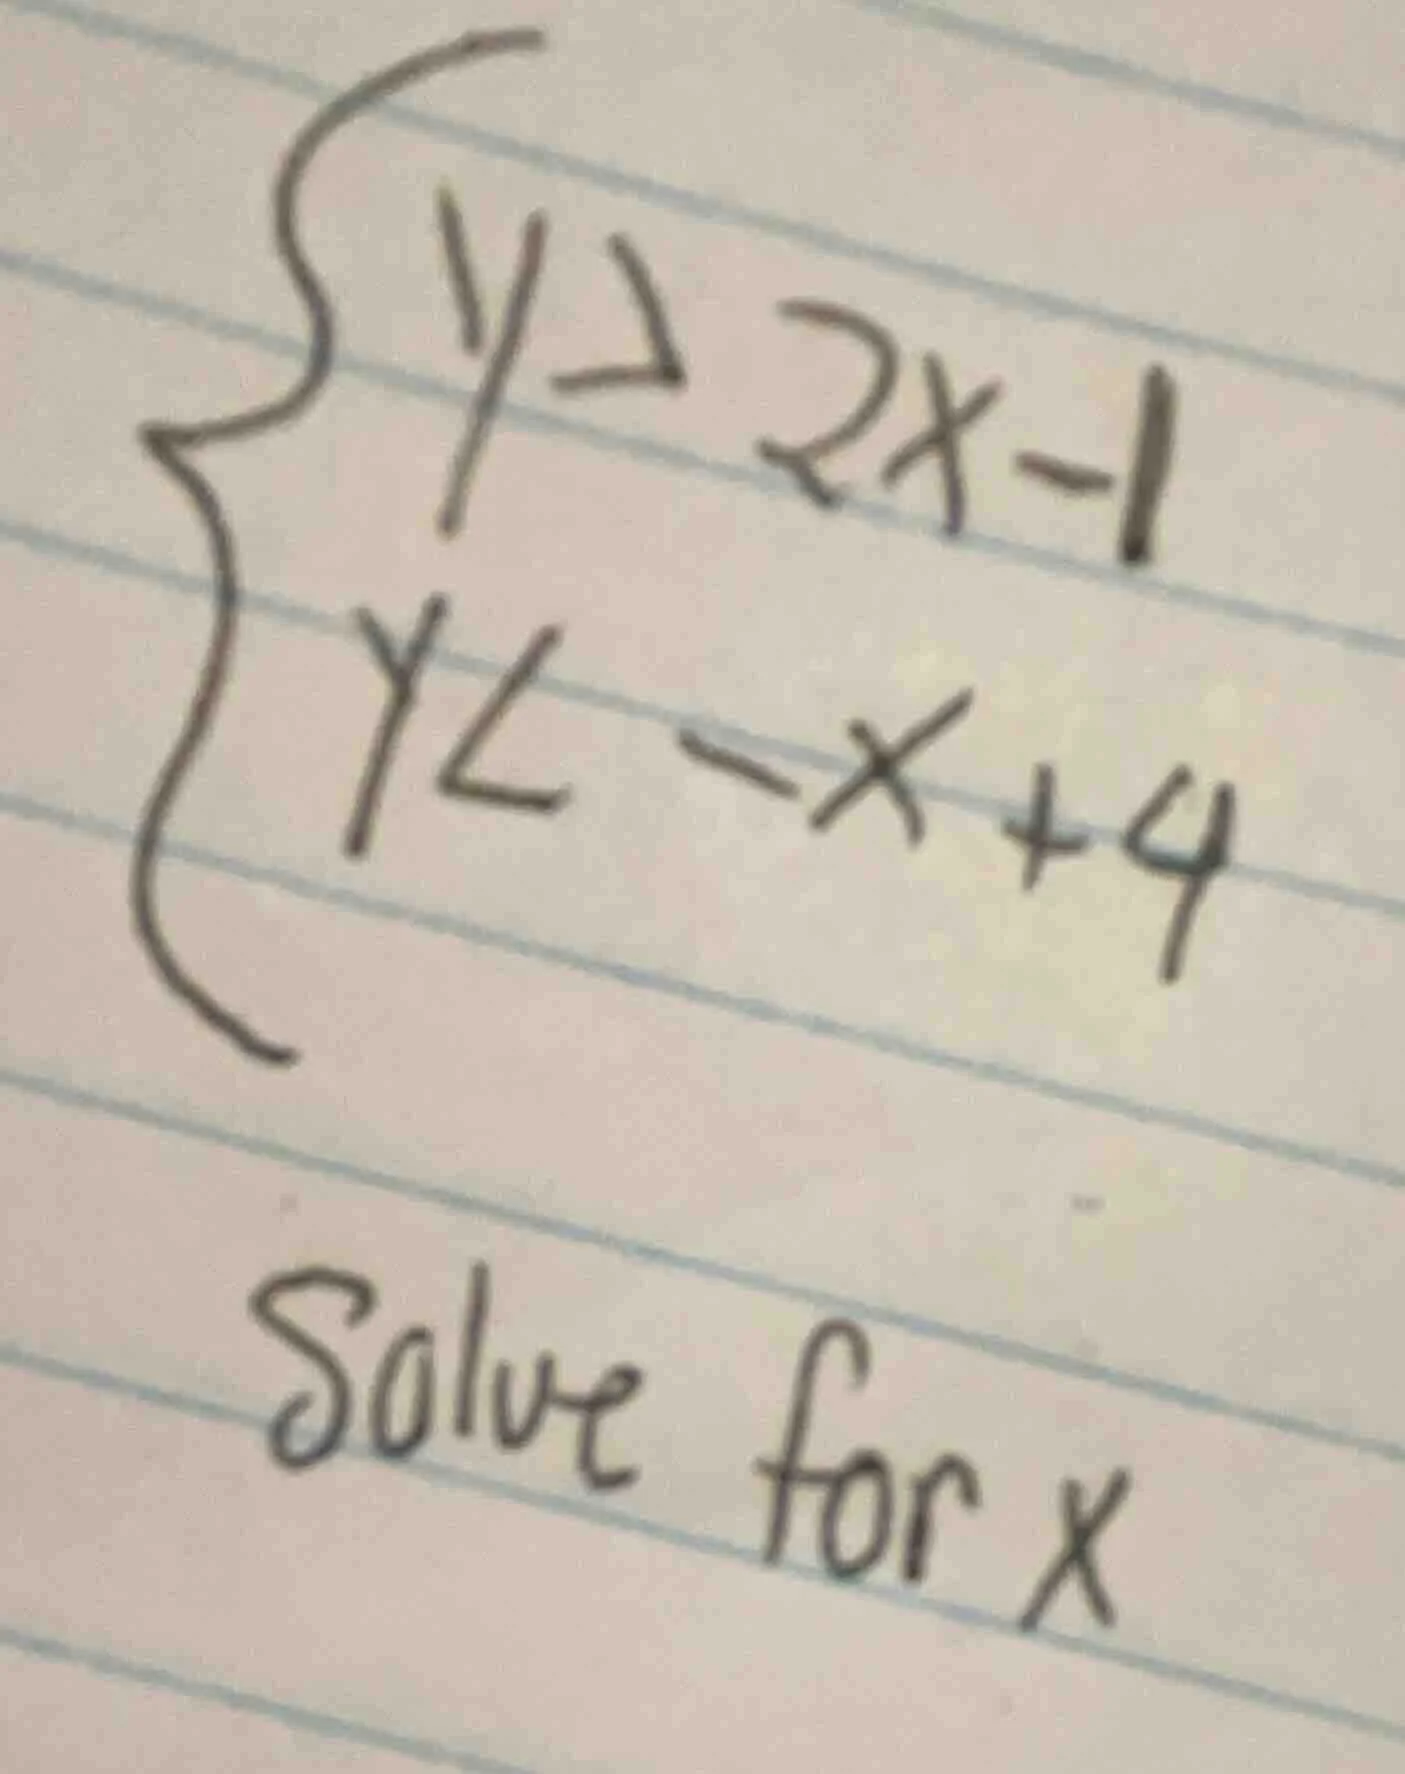 y > 2x - 1
y < -x + 4
Solve for x